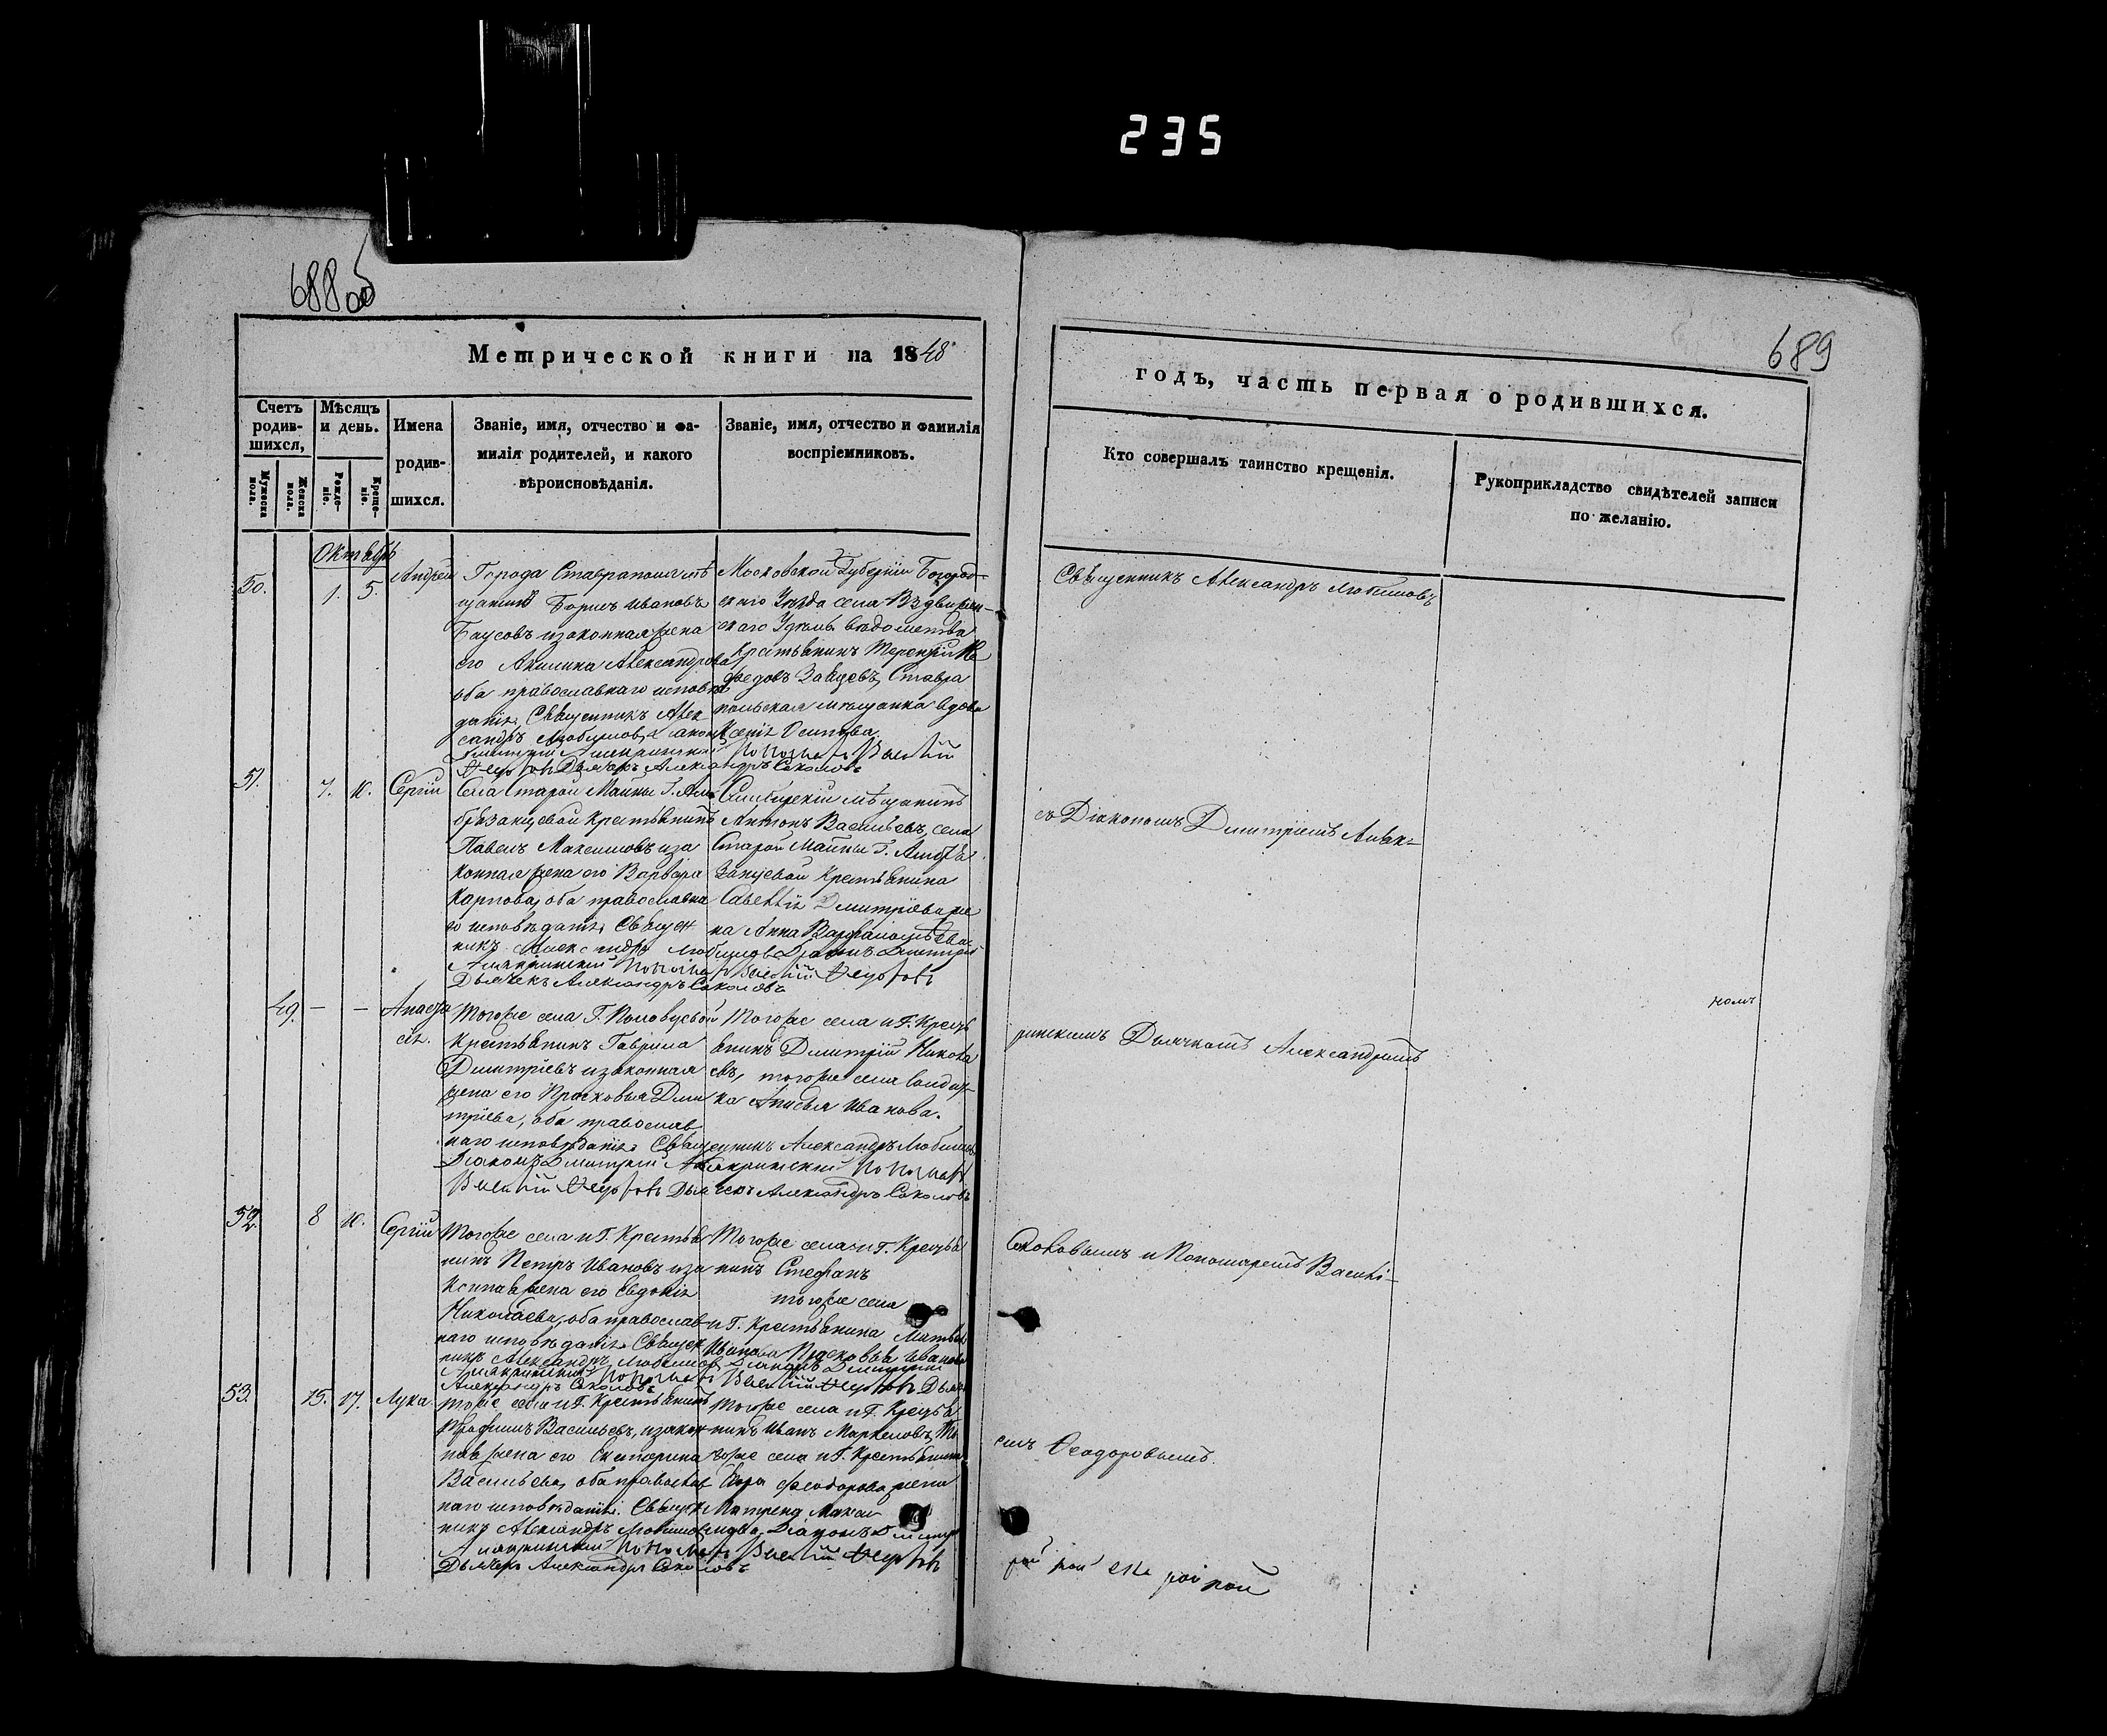 235
688 об
Метрической книги на 1848
Счетъ родив-шихся,
Мужеска пола.
Женска пола.
Мѣсяцъ и день.
Рожде-ніе.
Креще-ніе.
Имена родив-шихся.
Званіе, имя, отчество и фа-
милія родителей, и какого
вѣроисповѣданія.
Званіе, имя, отчество и фамилія
воспріемниковъ.
Октябрь
50.
1.
5.
Андрей
Города Ставрополя мѣ
щанинъ Борисъ Ивановъ
Баусовъ изаконная жена
его Акилина Александрова
оба православнаго исповѣ
данія. Священникъ Алек
сандръ Любимовъ
Дьячекъ Александръ Соколовъ
Московской Губерніи Богород-
скаго Уѣзда села Вздвижен-
скаго Удѣль. вѣдомства
Крестьянинъ Терентій
Ѳедовъ Зайцевъ, Ставро
польская мѣщанка вдова
Ксенія Осипова.
51.
7.
10.
Сергій
Села Старой Майны Г. Ам
брзанцевой крестьянинъ
Павелъ Максимовъ иза
конная жена его Варвара
Карпова, оба православна
го исповѣданія. Священ
никъ Александръ Любимовъ Діаконъ Димитрій
Дьячекъ Александръ Соколовъ
Симбирскій мѣщанинъ
Антонъ Васильевъ, села
Старой Майны Г.
занцевой Крестьянина
Савелія Дмитріева же
на Анна
49.
-
-
Анаста
сія.
Тогоже села Г. Половцевой
Крестьянинъ Гаврила
Димитріевъ изаконная
жена его Прасковья Дми
тріева, оба православ
наго исповѣданія. Священникъ Александръ Любимовъ
Діаконъ Димитрій
Дьячекъ Александръ Соколовъ
Тогоже села и Г. Кресть
янинъ Димитрій Никола
евъ, тогоже села солдат-
ка Анисья Иванова.
52.
8
10.
Сергій
Тогоже села и Г. Крестья
нинъ Петръ Ивановъ иза
конная жена его Евдокія
Николаева, оба православ
наго исповѣданія. Священ
никъ Александръ Любимовъ Діаконъ Димитрій
Александръ Соколовъ
Тогоже села и Г. Крестья
нинъ Стефанъ
тогоже села
и Г. Крестьянина Матвѣя
Иванова Прасковья Иванова
53.
15.
17.
Лука
тоже села и Г. Крестьянинъ
Трофимъ Васильевъ, изакон
ная жена его Екатерина
Васильева, оба православ
наго исповѣданія. Священ
никъ Александръ Любимовъ
Дьячекъ Александръ Соколовъ
Тогоже села и Г. Крестья
нинъ Иванъ Маркеловъ, То
гоже села и Г. Крестьянина
Феодорова жена
Матрена Макси
мова. Діаконъ Димитр
689
годъ, часть первая о родившихся.
Кто совершалъ таинство крещенія.
Рукоприкладство свидѣтелей записи
по желанію.
Священникъ Александръ Любимовъ
съ Діакономъ Димитріемъ Алак-
ринскимъ Дьячкомъ Александромъ
Соколовымъ и Пономаремъ Василі-
емъ Ѳеодоровымъ.